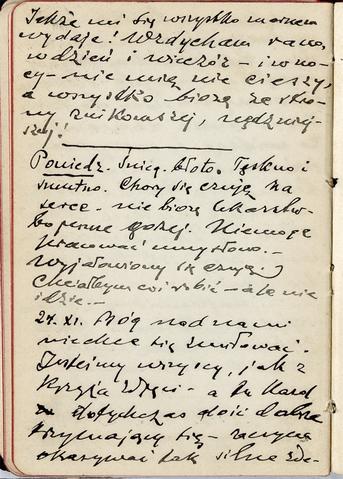 Jakże mi się wszystko marnem
wydaje! Wzdycham rano,
w dzień i wieczór - i w no-
cy - nic mię nie cieszy,
a wszystko biorę ze stro-
ny znikomszej, nędzniej-
szej!
Poniedz. Śnieg. Błoto. Tęskno i
smutno. Chory się czuję na
serce - nie biorę lekarstw -
bo gorzej. Nie mogę
pracować umysłowo. -
Wyjałowiony się czuję.
Chciałbym coś robić - ale nie
idzie. -
27. XI. Bóg nad nami
niechce się zmiłować.
Jesteśmy wszyscy, jak z
Krzyża zdjęci - a tu
dotychczas dość dobrze
trzymający się - zaczyna
okazywać tak silne zde-